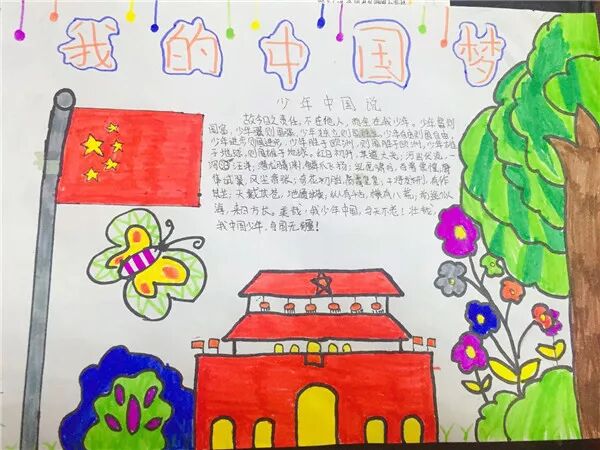 我的中国梦
少年中国说
故今日之责任，不在他人，而全在我少年。少年智则
国富，少年强则国强，少年独立则国独立，少年自由则国自由，
少年进步则国进步，少年胜于欧洲，则国胜于欧洲，少年雄
于地球，则国雄于地球。红日初升，其道大光；河出伏流，一
泻汪洋；潜龙腾渊，鳞爪飞扬；乳虎啸谷，百兽震惶；鹰
隼试翼，风尘吸张；奇花初胎，矞矞皇皇；干将发硎，有作
其芒；天戴其苍，地履其黄；纵有千古，横有八荒；前途似
海，来日方长。美哉，我少年中国，与天不老！壮哉，
我中国少年，与国无疆！